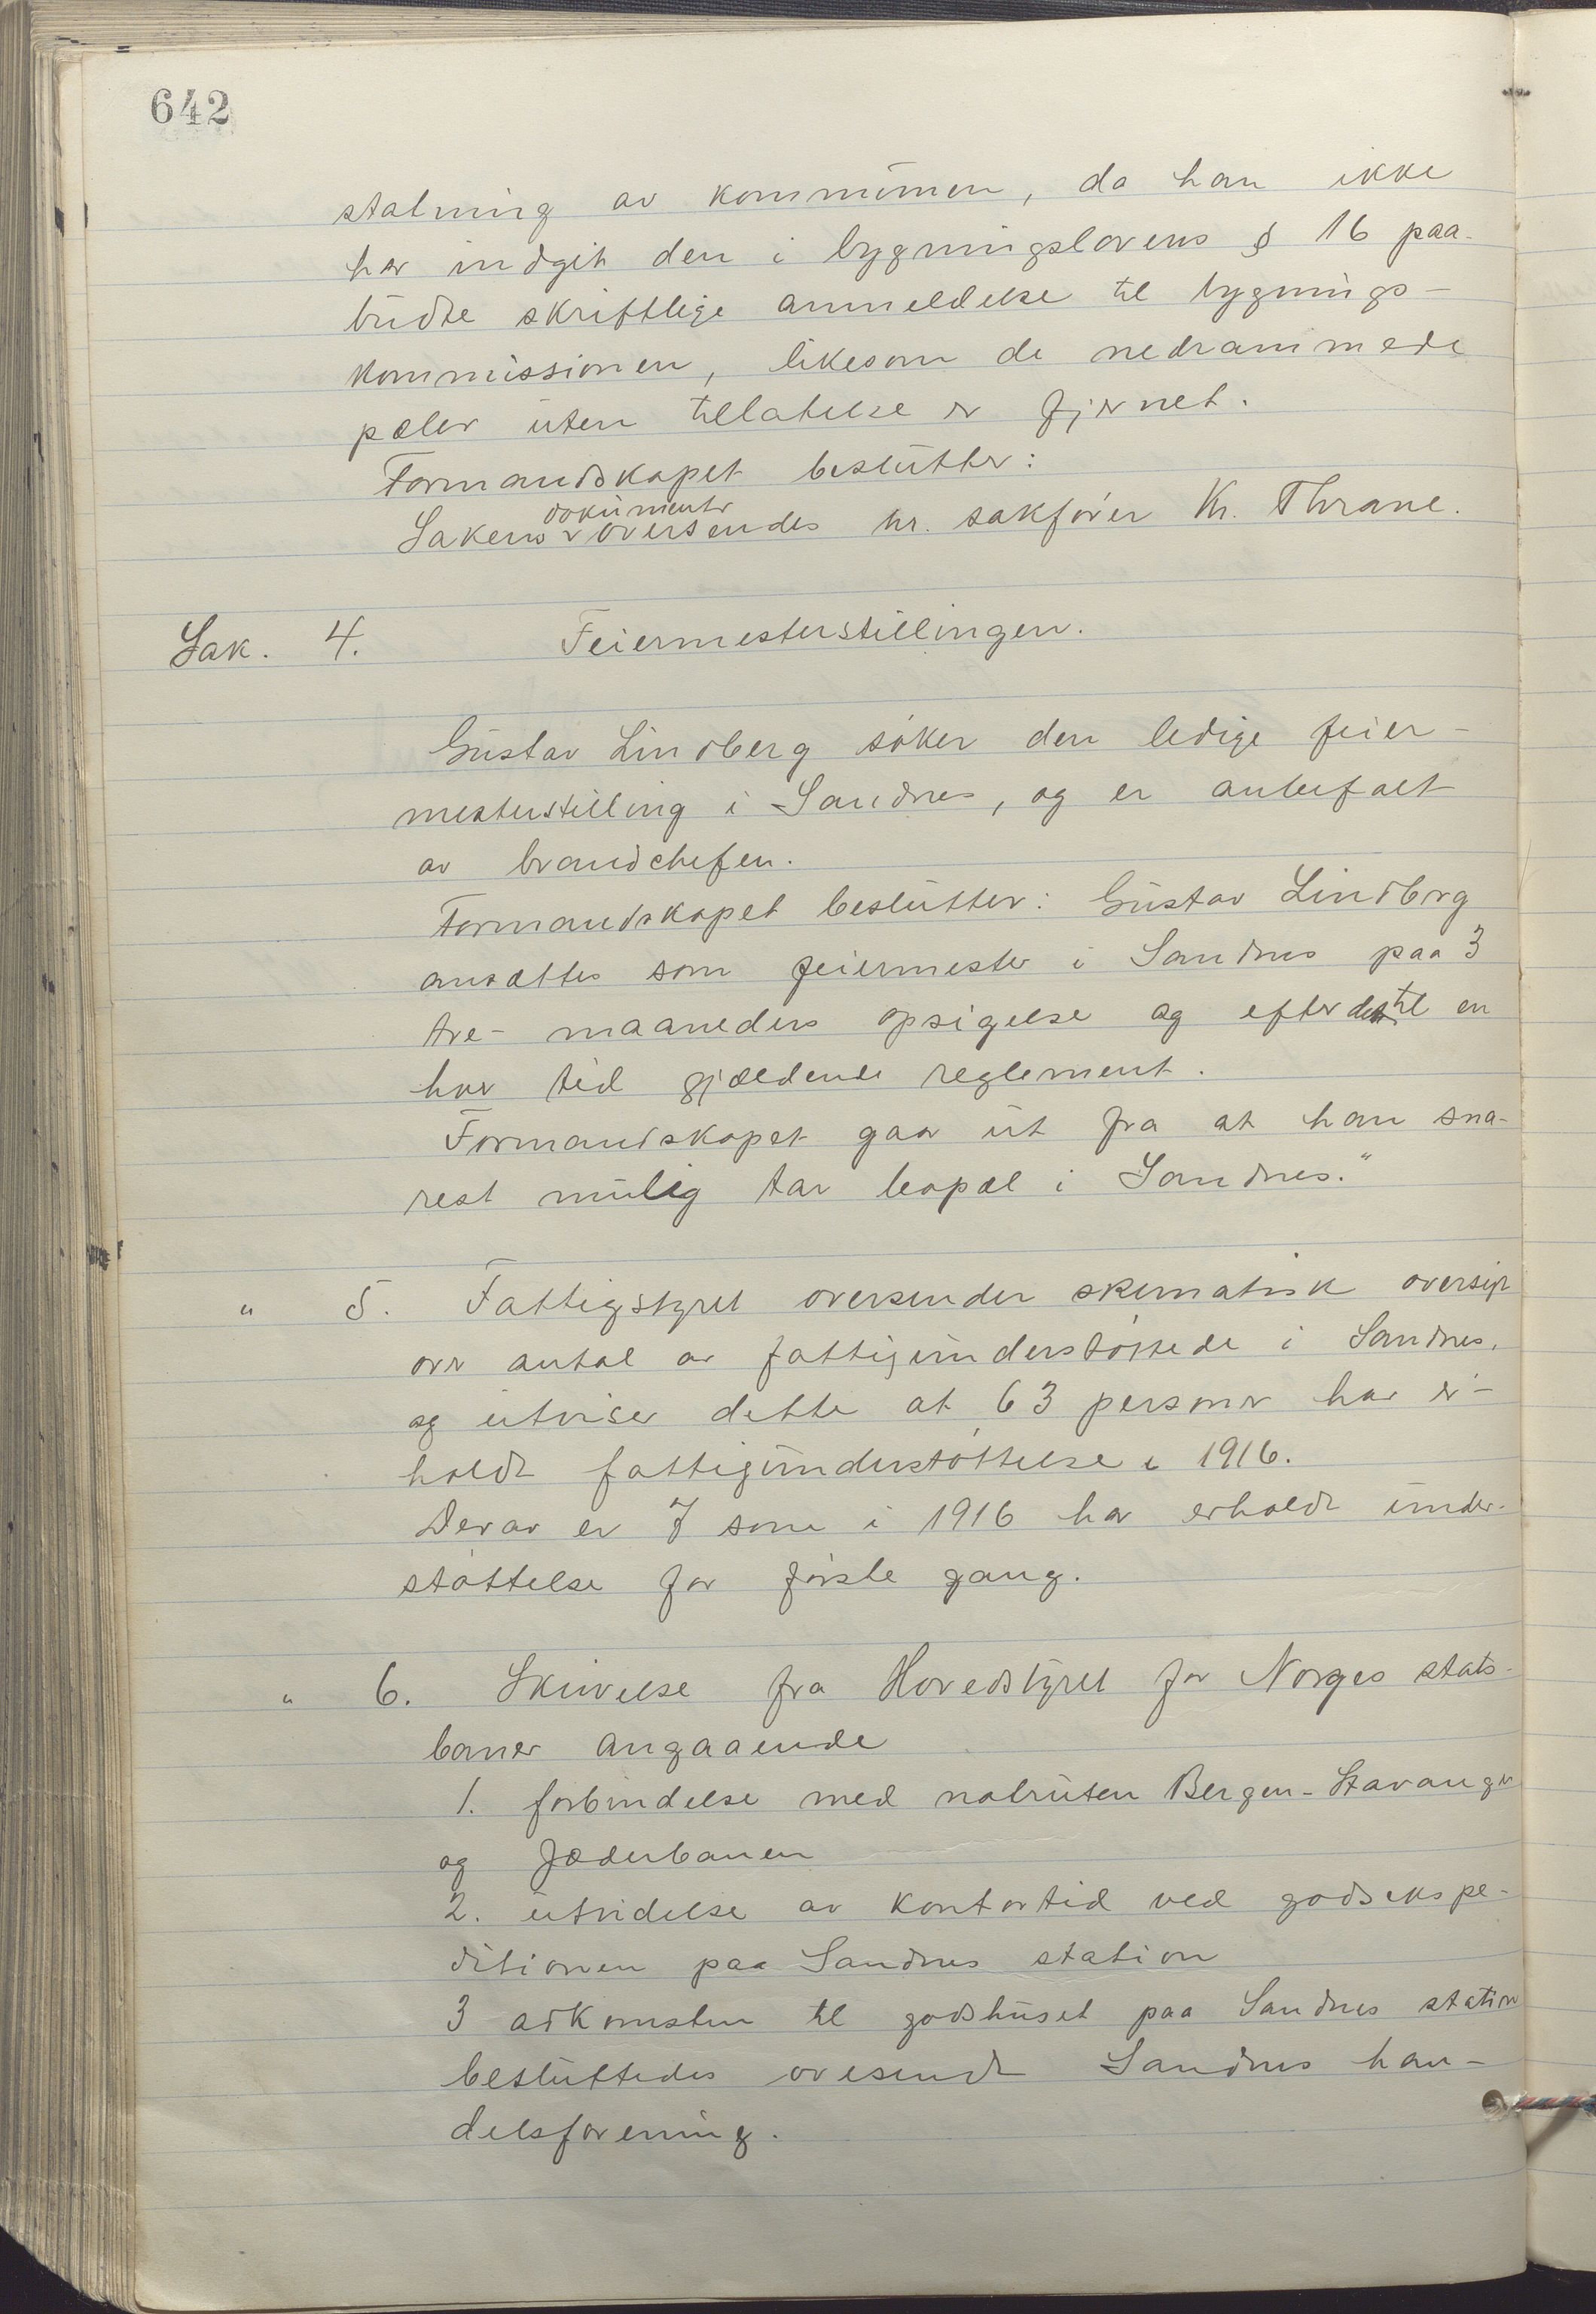 642
statning av kommunen, da han ikke
har indgit den i bygningslovens § 16 paa-
budte skriftlige anmeldelse til bygnings-
kommissionen, likesom de nedrammede
pæler uten tillatelse er fjernet.
Formandskapet beslutter:
dokumenter
Sakens oversendes hr. sakfører Kr. Thrane.
Sak. 4. Feiermesterstillingen.
Gustav Lindberg søker den ledige feier-
mesterstilling i Sandnes, og er anbefalt
av brandchefen.
Formandskapet beslutter: Gustav Lindberg
ansættes som feiermester i Sandnes paa 3
tre- maaneders opsigelse og efter det til en
hver tid gjældende reglement.
Formandskapet gaar ut fra at han sna-
rest mulig tar bopæl i Sandnes."
" 5. Fattigstyret oversender skematisk oversigt
over antal av fattigunderstøttede i Sandnes,
og utviser dette at 63 personer har er-
holdt fattigunderstøttelse i 1916.
Derav er 7 som i 1916 har erholdt under-
støttelse for første gang.
" 6. Skrivelse fra Hovedstyret for Norges stats-
baner angaaende
1. forbindelse med natruten Bergen-Stavanger
og Jæderbanen
2. utvidelse av kontortid ved godsekspe-
ditionen paa Sandnes station
3 adkomsten til godshuset paa Sandnes station
besluttedes ovesendt Sandnes han-
delsforening.